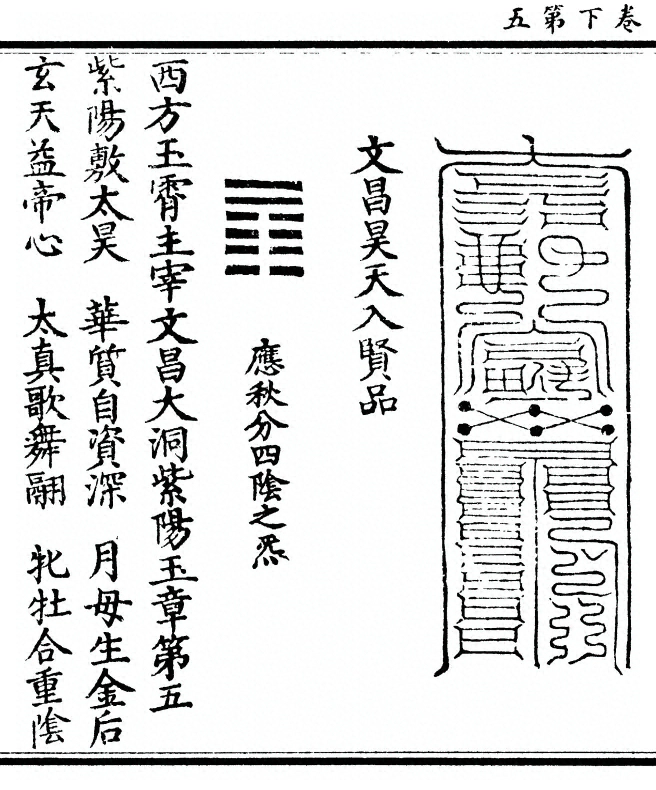 卷下第五
文昌昊天入賢品
應秋分四陰之炁
西方玉霄主宰文昌大洞紫陽玉章第五
紫陽敷太昊　華質自資深　月母生金后
玄天益帝心　太真歌舞翮　牝牡合重陰